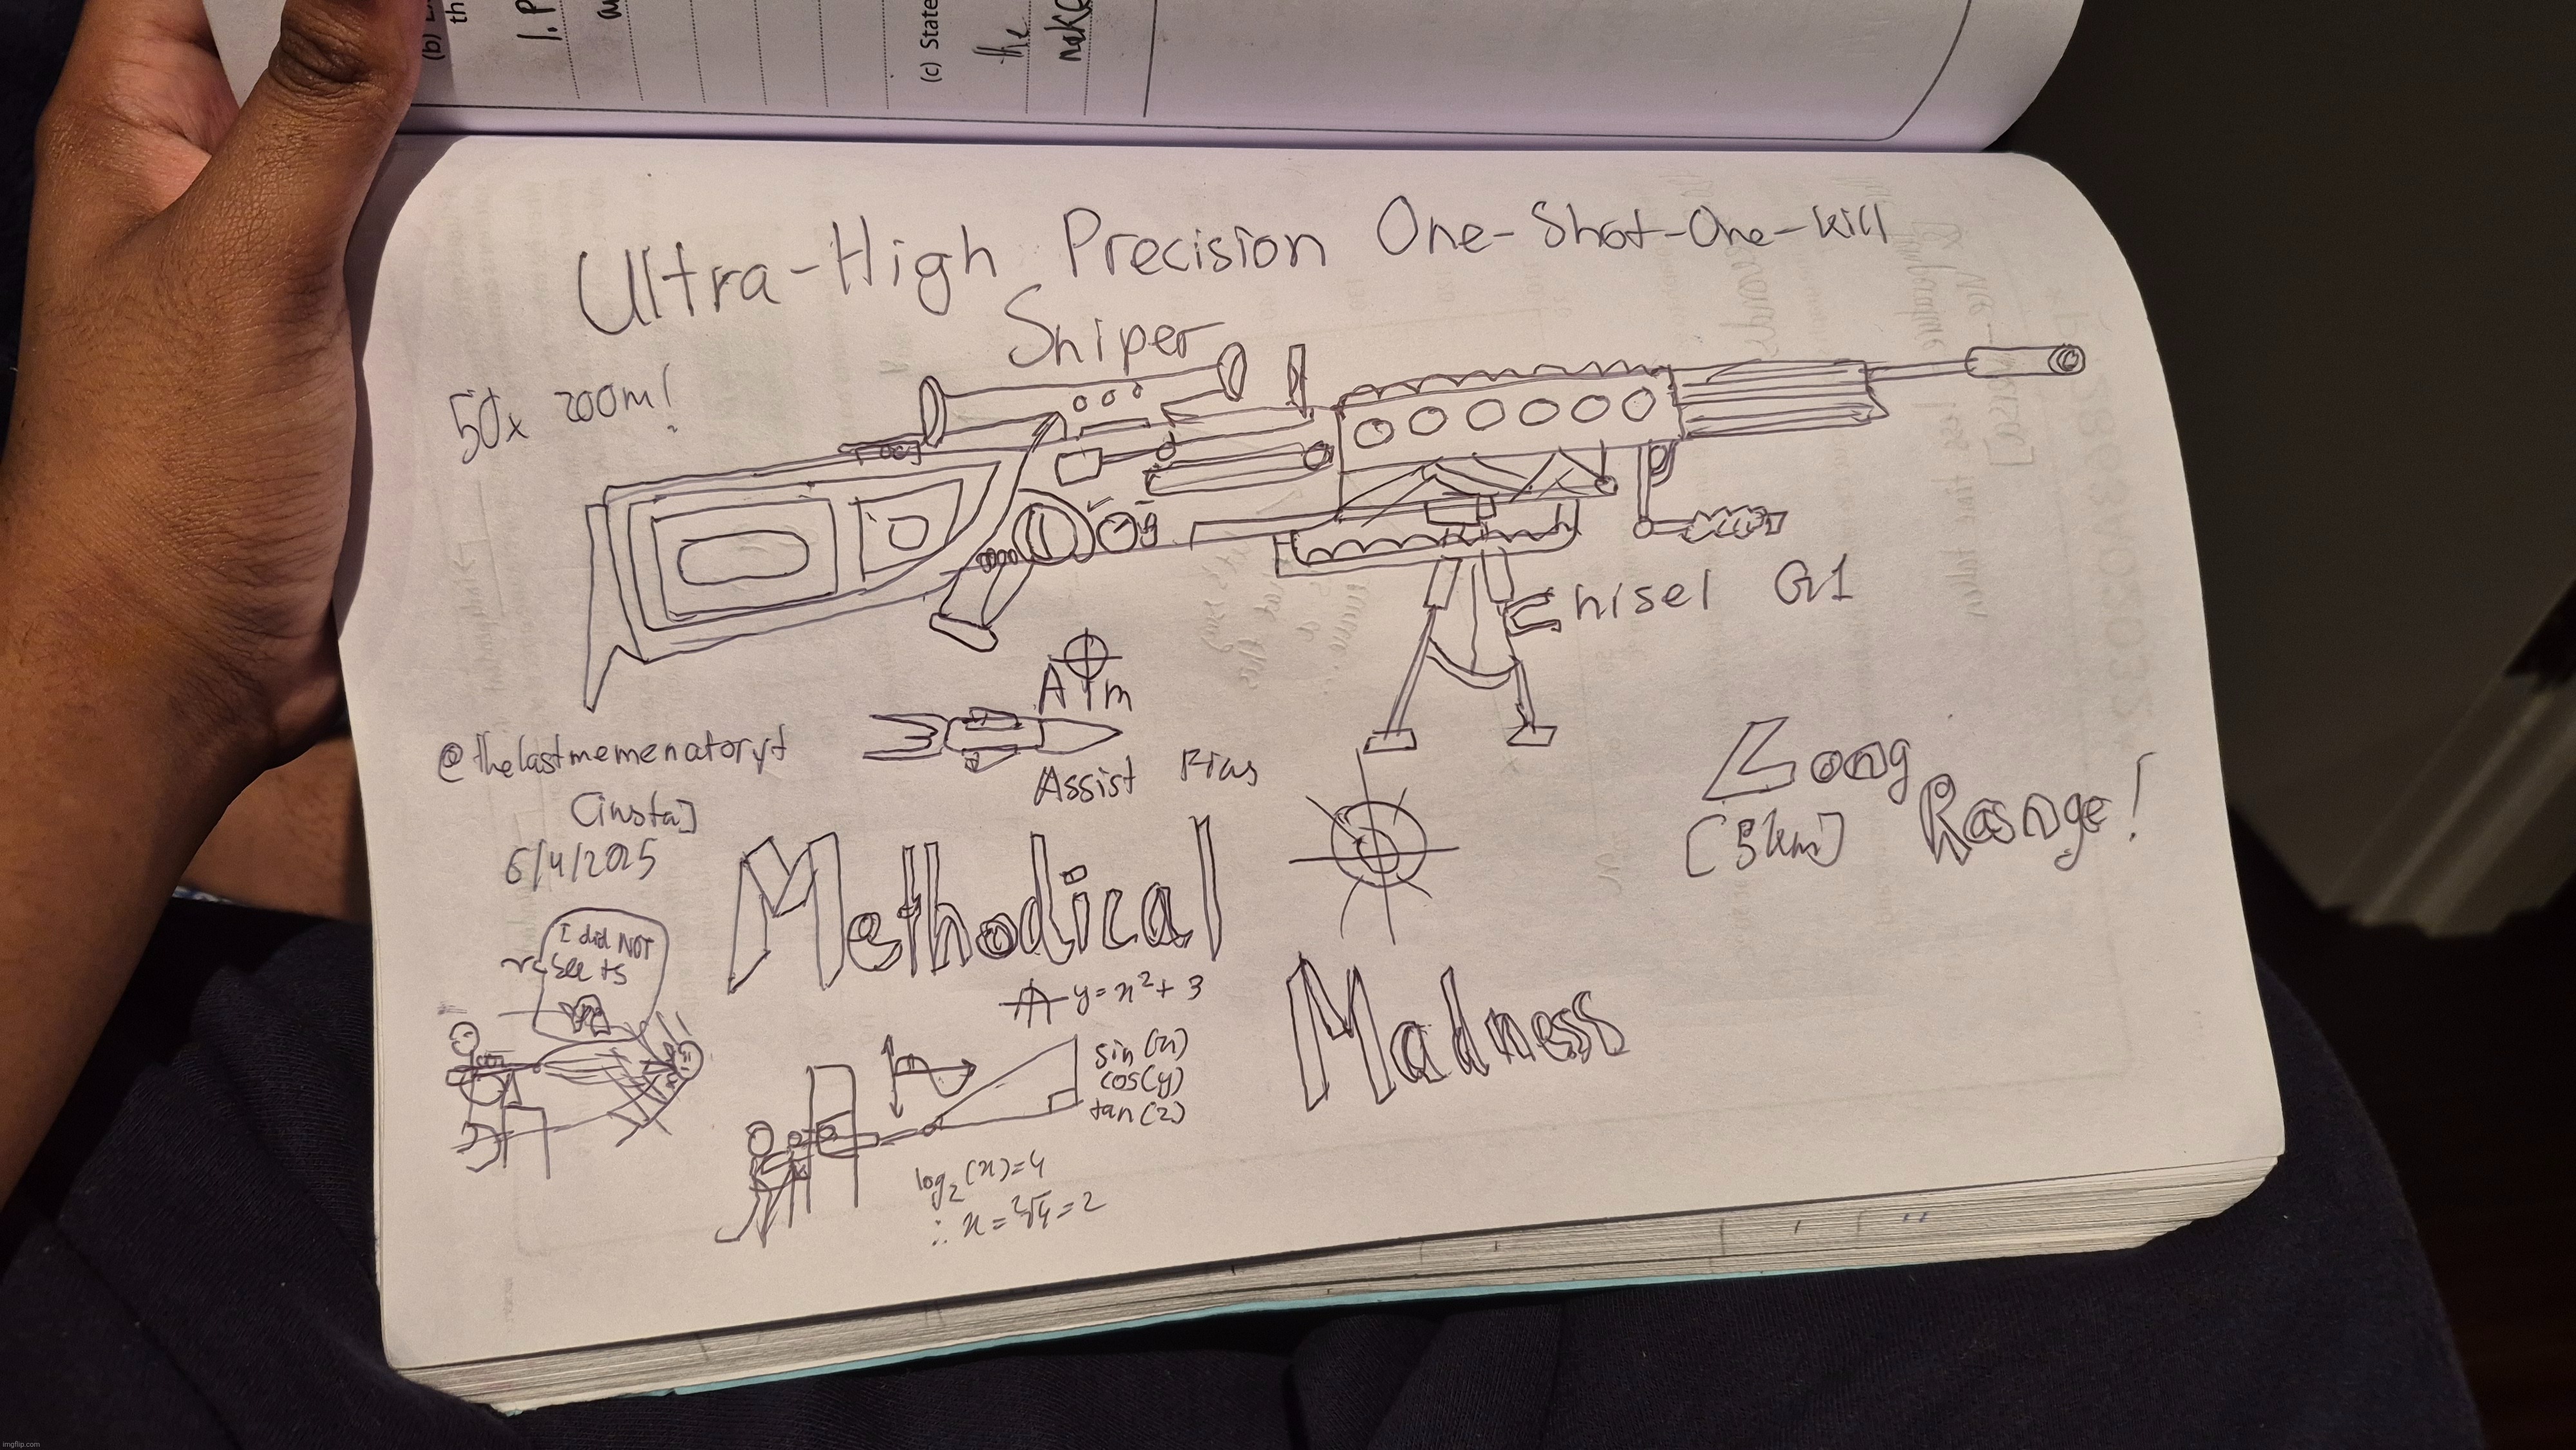 (b)
th
1. P
(c) State
the
make
Ultra-High Precision One-Shot-One-kill
Sniper
50x 200m!
Chisel G1
AIm
Assist
@thelastmemenatoryt
[insta]
6/4/2025
Long
Range!
[5km]
Methodical
Madness
I did NOT
see ts
y=x²+3
sin(x)
cos(y)
tan(z)
log₂(x)=4
∴ x=²√4=2
imgflip.com